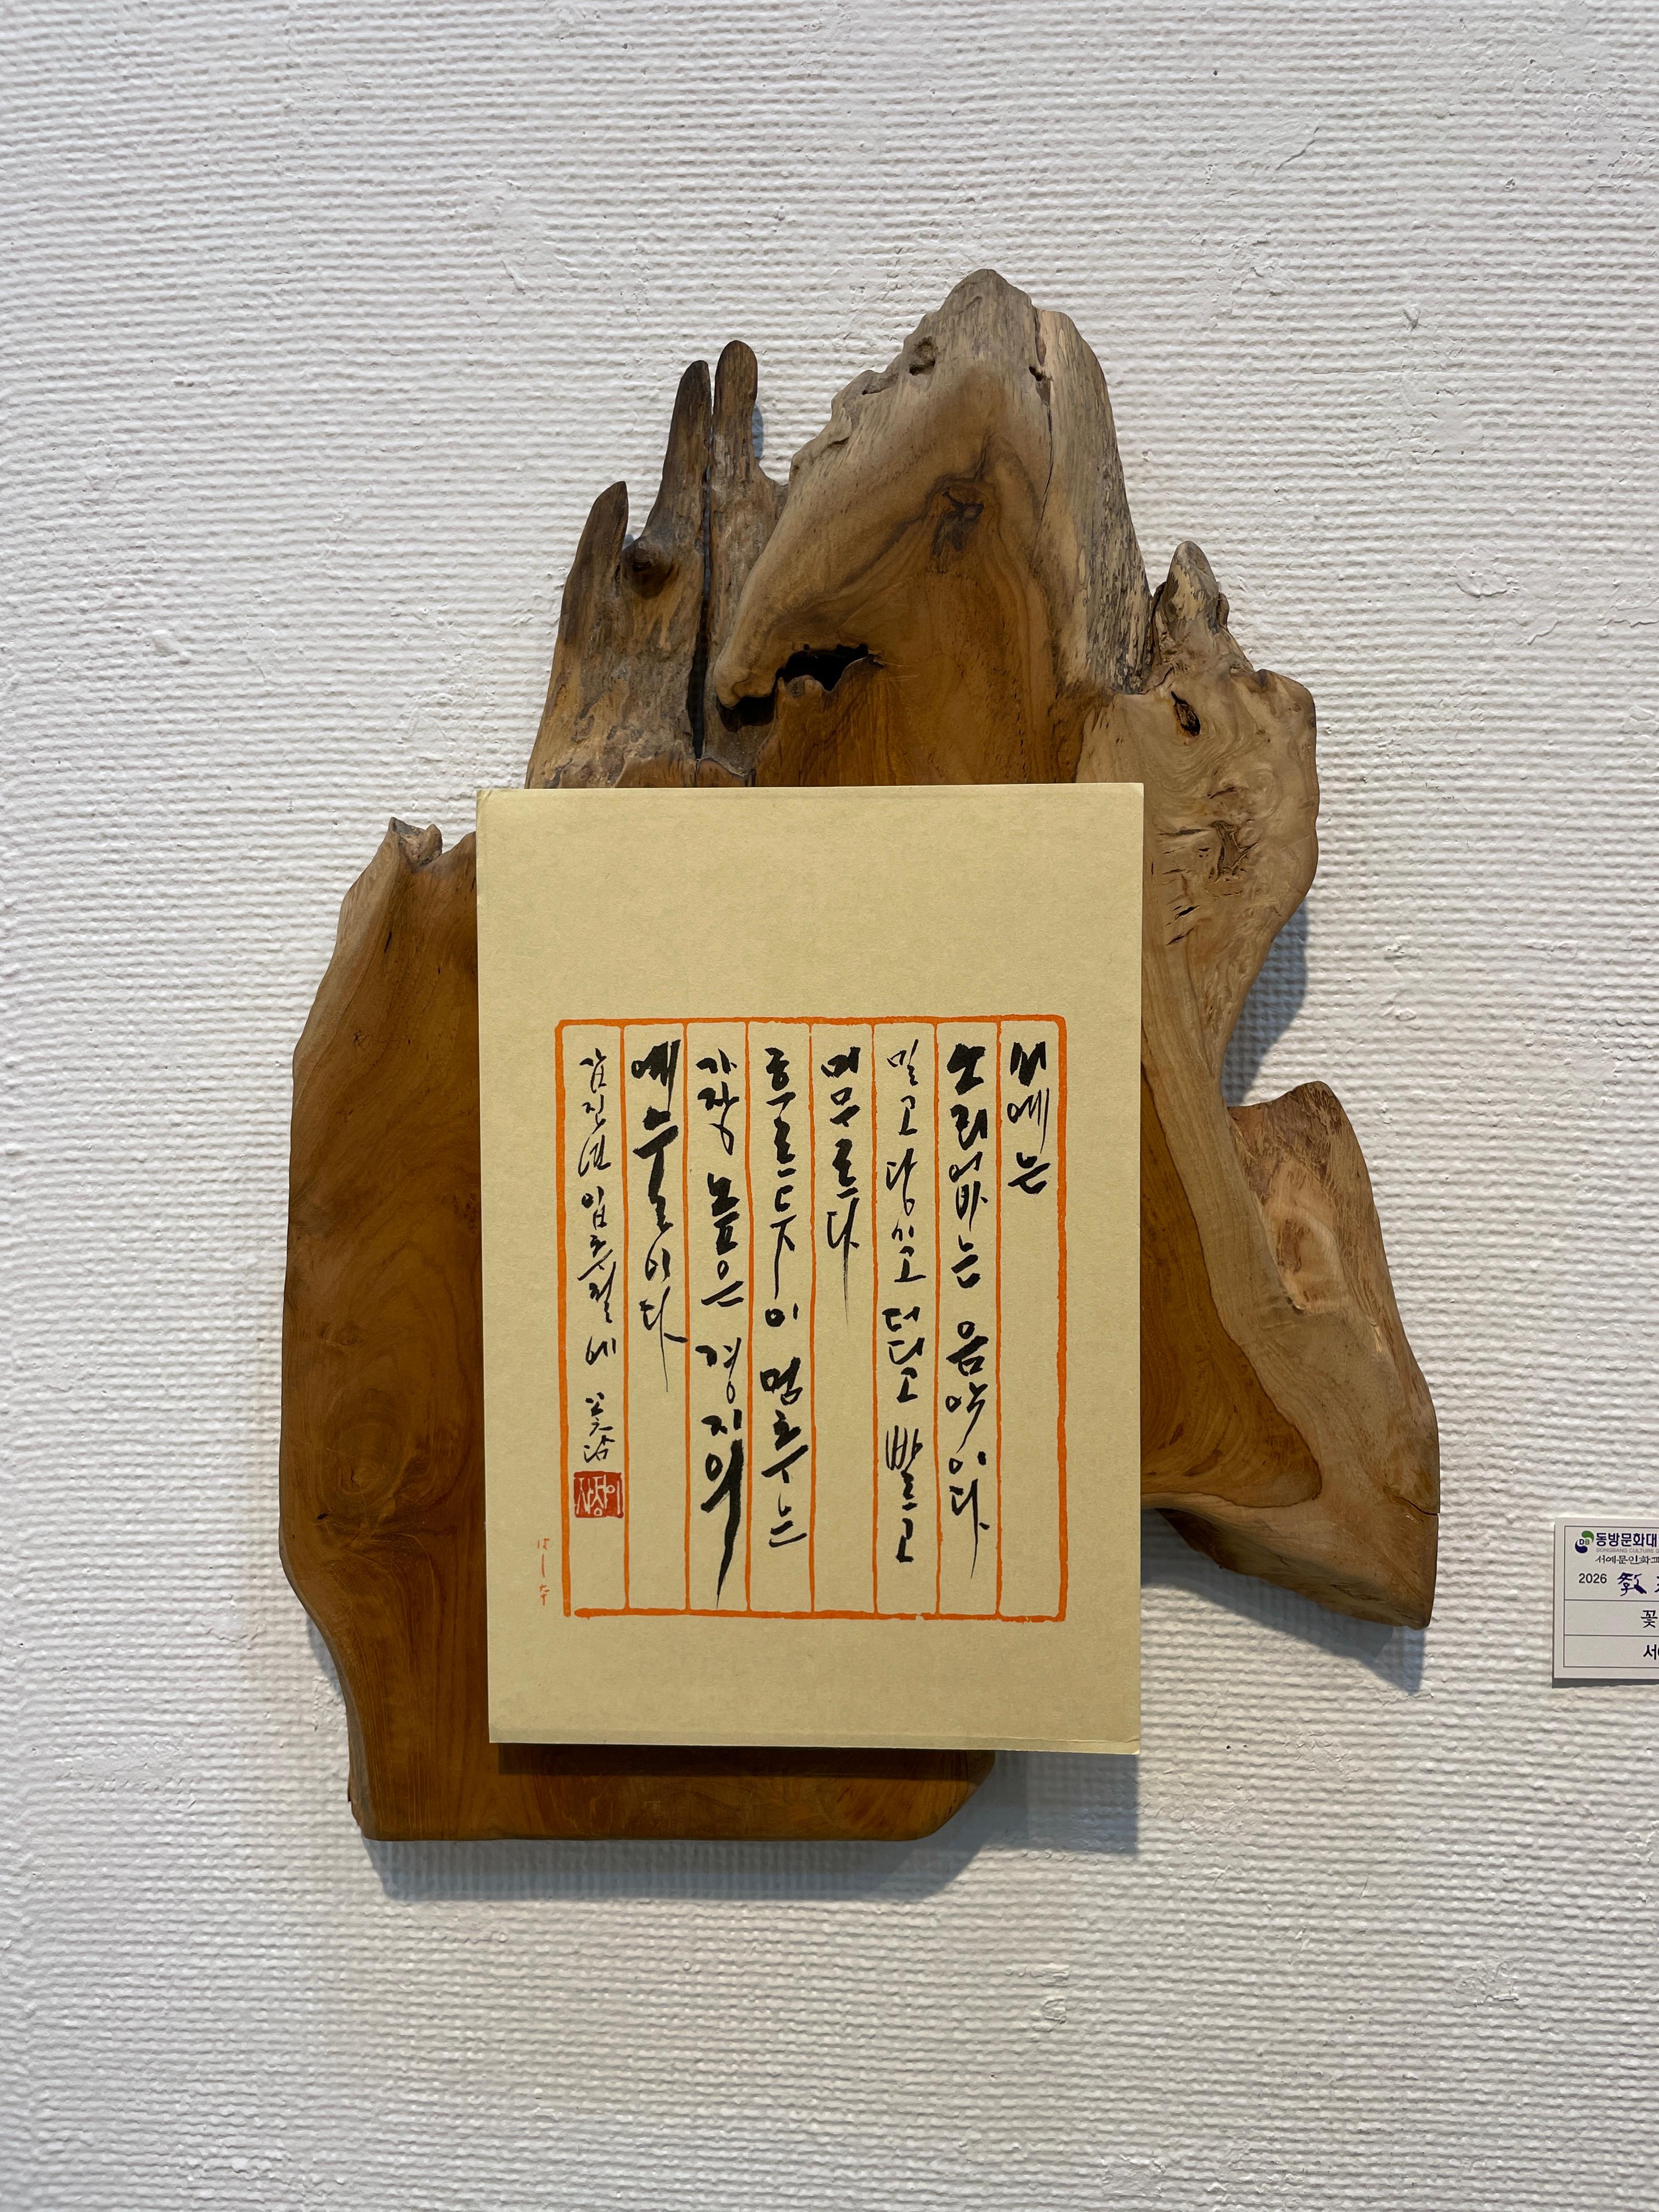 서예는
소리없는 음악이다
밀고 당기고 더디고 빠르고
머무르다
흐르듯이 멈추는
가장 높은 경지의
예술이다
갑진년 입추절에 꽃담
동방문화대
서예문인화
2026
꽃